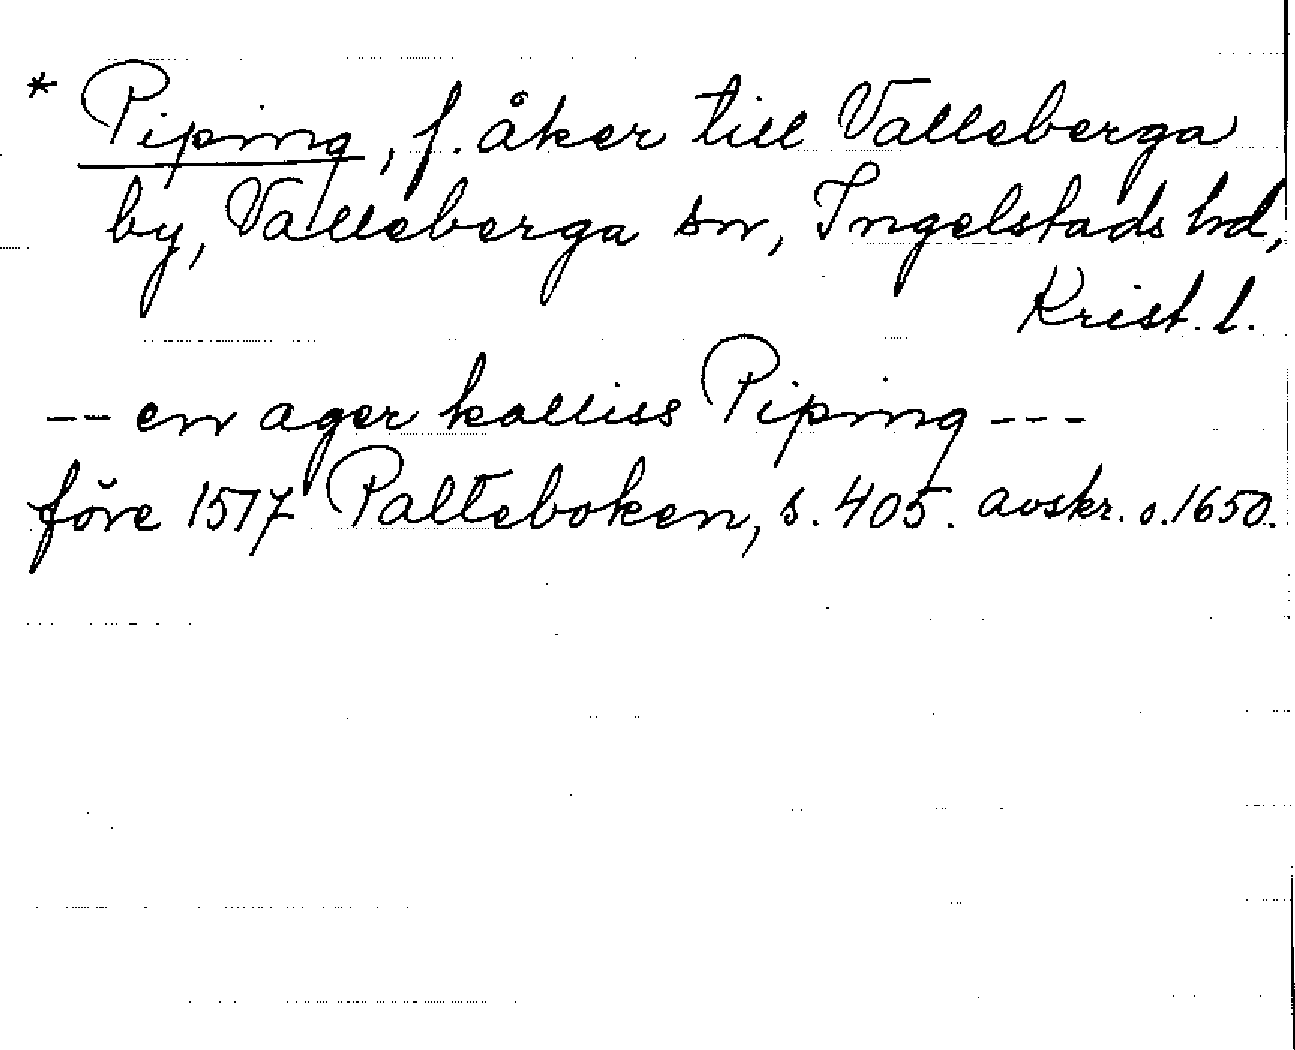 * Piping, f. åker till Valleberga
by, Valleberga sn, Ingelstads hd,
Krist. l.
-- en ager kalliss Piping ---
före 1517 Palteboken, s. 405. avskr. o. 1650.